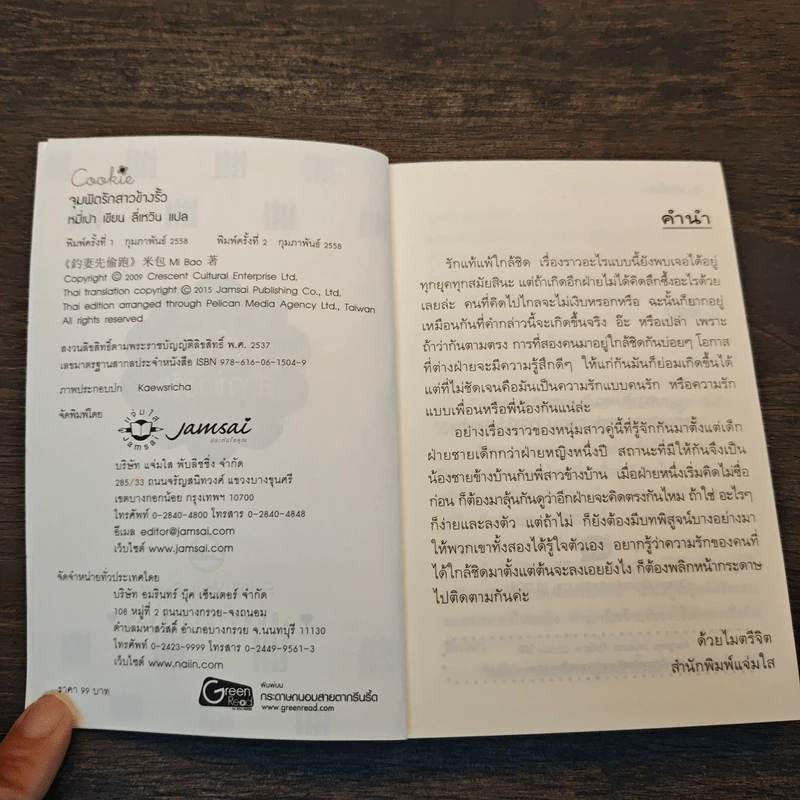 Cookie
จุมพิตรักสาวข้างรั้ว
หมี่เปา เขียน ลี่เหวิน แปล
พิมพ์ครั้งที่ 1 กุมภาพันธ์ 2558 พิมพ์ครั้งที่ 2 กุมภาพันธ์ 2558
《釣妻先偷跑》米包 Mi Bao 著
Copyright © 2009 Crescent Cultural Enterprise Ltd.
Thai translation copyright © 2015 Jamsai Publishing Co., Ltd.
Thai edition arranged through Pelican Media Agency Ltd., Taiwan
All rights reserved
สงวนลิขสิทธิ์ตามพระราชบัญญัติลิขสิทธิ์ พ.ศ. 2537
เลขมาตรฐานสากลประจำหนังสือ ISBN 978-616-06-1504-9
ภาพประกอบปก Kaewsricha
จัดพิมพ์โดย
แจ่มใส
Jamsai
Jamsai
ประทับใจคุณ
บริษัท แจ่มใส พับลิชชิ่ง จำกัด
285/33 ถนนจรัญสนิทวงศ์ แขวงบางขุนศรี
เขตบางกอกน้อย กรุงเทพฯ 10700
โทรศัพท์ 0-2840-4800 โทรสาร 0-2840-4848
อีเมล editor@jamsai.com
เว็บไซต์ www.jamsai.com
จัดจำหน่ายทั่วประเทศโดย
บริษัท อมรินทร์ บุ๊ค เซ็นเตอร์ จำกัด
108 หมู่ที่ 2 ถนนบางกรวย-จงถนอม
ตำบลมหาสวัสดิ์ อำเภอบางกรวย จ.นนทบุรี 11130
โทรศัพท์ 0-2423-9999 โทรสาร 0-2449-9561-3
เว็บไซต์ www.naiin.com
ราคา 99 บาท
Green Read
พิมพ์บน
กระดาษถนอมสายตากรีนรี้ด
www.greenread.com
คำนำ
รักแท้แพ้ใกล้ชิด เรื่องราวอะไรแบบนี้ยังพบเจอได้อยู่
ทุกยุคทุกสมัยสินะ แต่ถ้าเกิดอีกฝ่ายไม่ได้คิดลึกซึ้งอะไรด้วย
เลยล่ะ คนที่คิดไปไกลจะไม่เงิบหรอกหรือ ฉะนั้นก็ยากอยู่
เหมือนกันที่คำกล่าวนี้จะเกิดขึ้นจริง อ๊ะ หรือเปล่า เพราะ
ถ้าว่ากันตามตรง การที่สองคนมาอยู่ใกล้ชิดกันบ่อยๆ โอกาส
ที่ต่างฝ่ายจะมีความรู้สึกดีๆ ให้แก่กันมันก็ย่อมเกิดขึ้นได้
แต่ที่ไม่ชัดเจนคือมันเป็นความรักแบบคนรัก หรือความรัก
แบบเพื่อนหรือพี่น้องกันแน่ล่ะ
อย่างเรื่องราวของหนุ่มสาวคู่นี้ที่รู้จักกันมาตั้งแต่เด็ก
ฝ่ายชายเด็กกว่าฝ่ายหญิงหนึ่งปี สถานะที่มีให้กันจึงเป็น
น้องชายข้างบ้านกับพี่สาวข้างบ้าน เมื่อฝ่ายหนึ่งเริ่มคิดไม่ซื่อ
ก่อน ก็ต้องมาลุ้นกันดูว่าอีกฝ่ายจะคิดตรงกันไหม ถ้าใช่ อะไรๆ
ก็ง่ายและลงตัว แต่ถ้าไม่ ก็ยังต้องมีบทพิสูจน์บางอย่างมา
ให้พวกเขาทั้งสองได้รู้ใจตัวเอง อยากรู้ว่าความรักของคนที่
ได้ใกล้ชิดมาตั้งแต่ต้นจะลงเอยยังไง ก็ต้องพลิกหน้ากระดาษ
ไปติดตามกันค่ะ
ด้วยไมตรีจิต
สำนักพิมพ์แจ่มใส